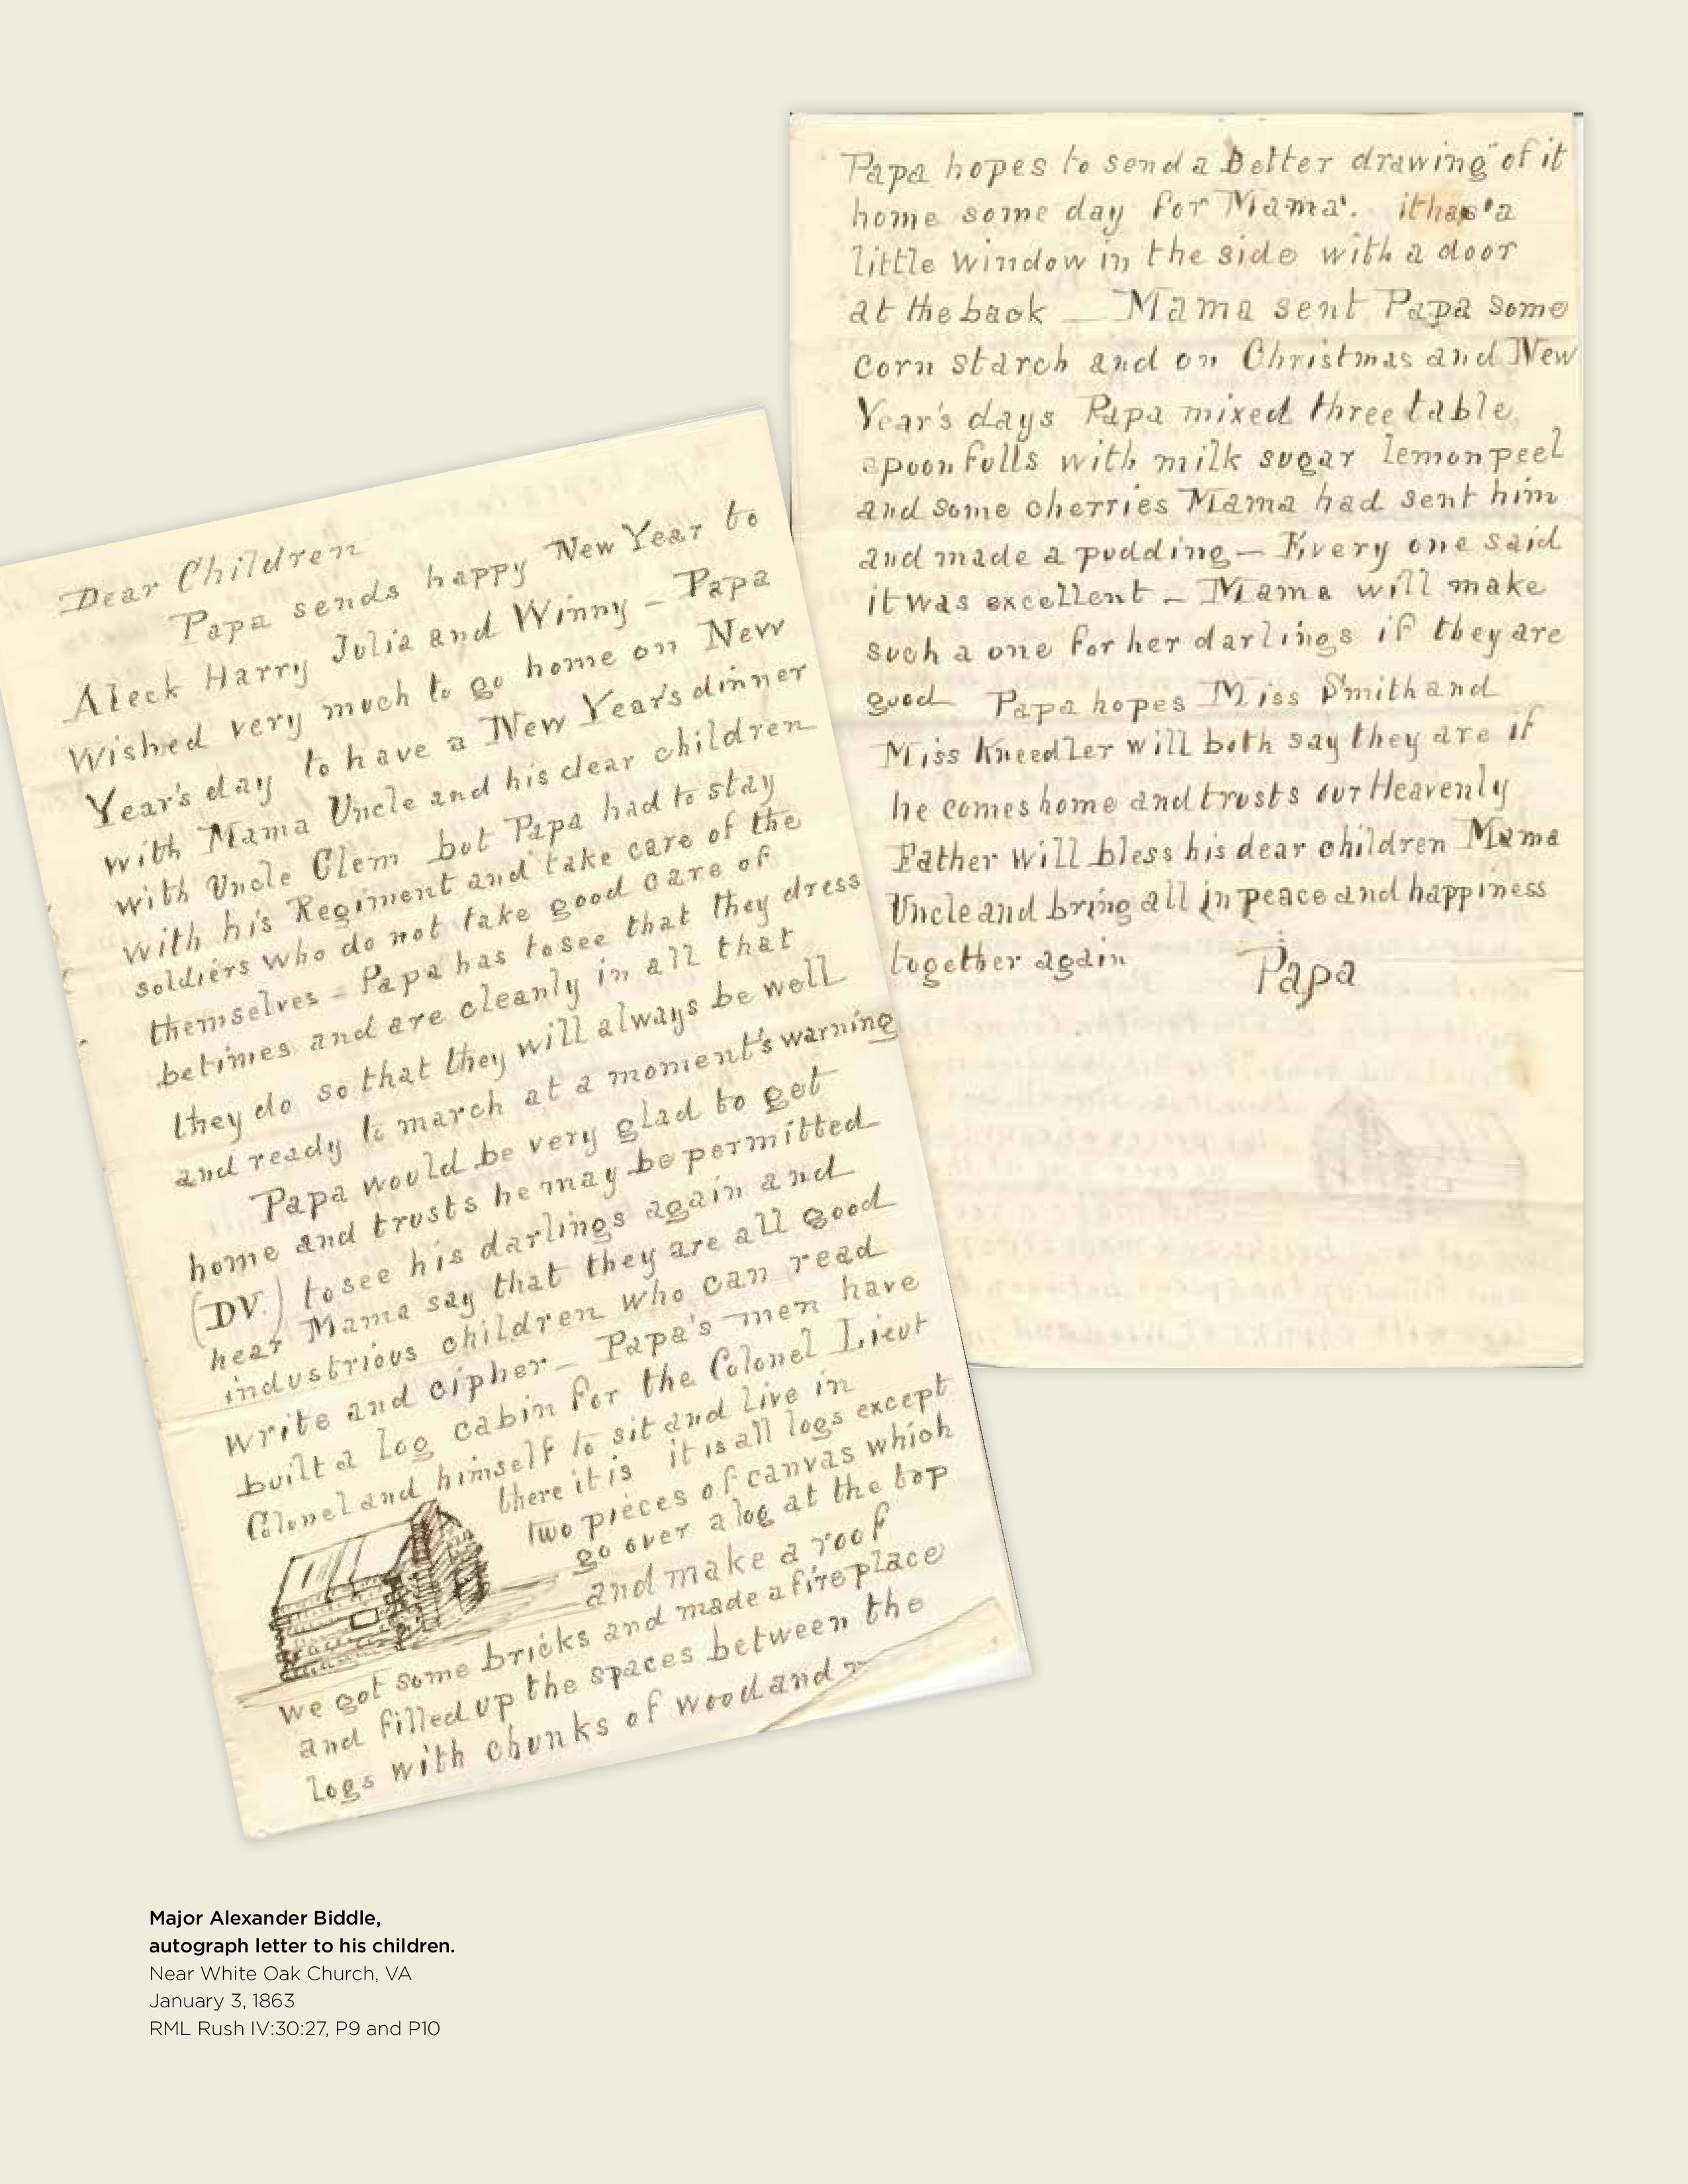 Dear Children
Papa sends happy New Year to
Aleck Harry Julia and Winny – Papa
Wished very much to go home on New
Year's day to have a New Year's dinner
with Mama Uncle and his dear children
with Uncle Clem but Papa had to stay
with his Regiment and take care of the
soldiers who do not take good care of
themselves – Papa has to see that they dress
betimes and are cleanly in all that
they do so that they will always be well
and ready to march at a moment's warning
Papa would be very glad to get
home and trusts he may be permitted
(DV.) to see his darlings again and
hear Mama say that they are all good
industrious children who can read
write and cipher – Papa's men have
built a log cabin for the Colonel Lieut
Colonel and himself to sit and live in
there it is it is all logs except
two pieces of canvas which
go over a log at the top
and make a roof
we got some bricks and made a fire place
and filled up the spaces between the
logs with chunks of wood and
Papa hopes to send a Better drawing of it
home some day for Mama. it has a
little window in the side with a door
at the back — Mama sent Papa some
corn starch and on Christmas and New
Year's days Papa mixed three table
spoon fulls with milk sugar lemon peel
and some cherries Mama had sent him
and made a pudding – Every one said
it was excellent – Mama will make
such a one for her darlings if they are
good Papa hopes Miss Smith and
Miss Kneedler will both say they are if
he comes home and trusts our Heavenly
Father will bless his dear children Mama
Uncle and bring all in peace and happiness
together again Papa
Major Alexander Biddle,
autograph letter to his children.
Near White Oak Church, VA
January 3, 1863
RML Rush IV:30:27, P9 and P10